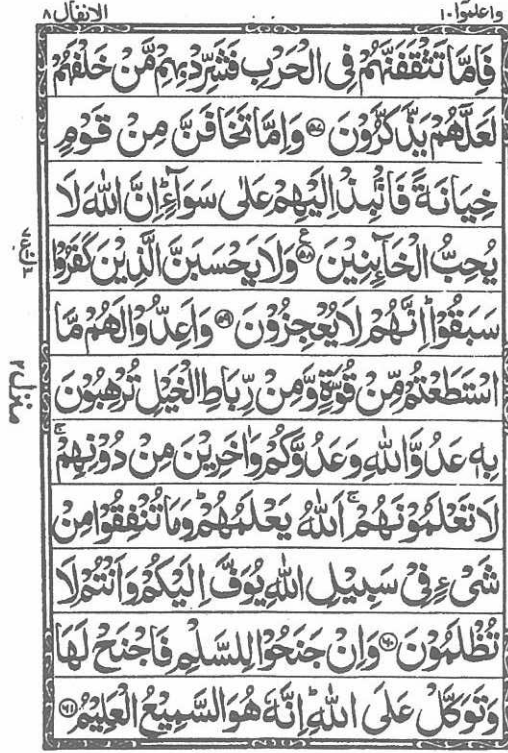 واعلموا ١٠
الانفال ٨
فَاِمَّا تَثْقَفَنَّهُمْ فِی الْحَرْبِ فَشَرِّدْ بِهِمْ مَّنْ خَلْفَهُمْ
لَعَلَّهُمْ یَذَّكَّرُوْنَ ۝۵۷ وَاِمَّا تَخَافَنَّ مِنْ قَوْمٍ
خِیَانَةً فَانْۢبِذْ اِلَیْهِمْ عَلٰی سَوَآءٍ ؕ اِنَّ اللّٰهَ لَا
یُحِبُّ الْخَآئِنِیْنَ ۝۵۸ ع وَلَا یَحْسَبَنَّ الَّذِیْنَ كَفَرُوْا
سَبَقُوْا ؕ اِنَّهُمْ لَا یُعْجِزُوْنَ ۝۵۹ وَاَعِدُّوْا لَهُمْ مَّا
اسْتَطَعْتُمْ مِّنْ قُوَّةٍ وَّمِنْ رِّبَاطِ الْخَیْلِ تُرْهِبُوْنَ
بِهٖ عَدُوَّ اللّٰهِ وَعَدُوَّكُمْ وَاٰخَرِیْنَ مِنْ دُوْنِهِمْ ۚ
لَا تَعْلَمُوْنَهُمْ ۚ اَللّٰهُ یَعْلَمُهُمْ ؕ وَمَا تُنْفِقُوْا مِنْ
شَیْءٍ فِیْ سَبِیْلِ اللّٰهِ یُوَفَّ اِلَیْكُمْ وَاَنْتُمْ لَا
تُظْلَمُوْنَ ۝۶۰ وَاِنْ جَنَحُوْا لِلسَّلْمِ فَاجْنَحْ لَهَا
وَتَوَكَّلْ عَلَی اللّٰهِ ؕ اِنَّهٗ هُوَ السَّمِیْعُ الْعَلِیْمُ ۝۶۱
منزل ٢